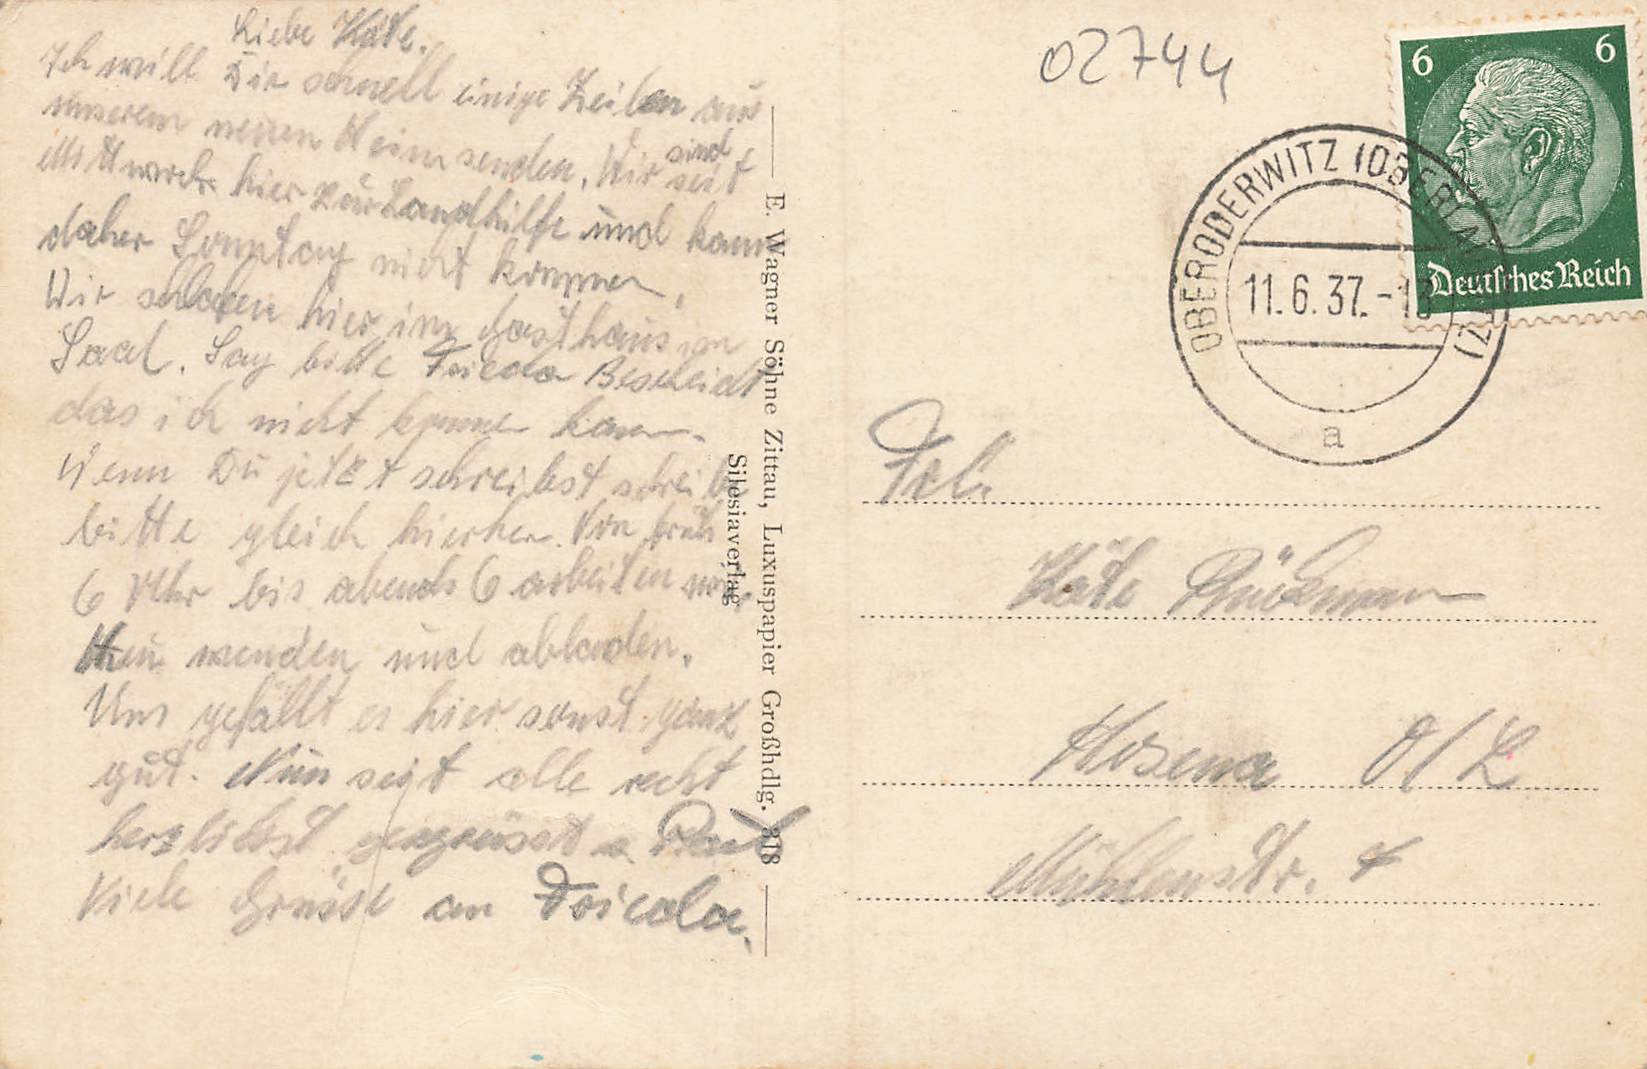 Liebe Käte.
Ich will Dir schnell einige Zeilen aus
unserem neuen Heim senden. Wir sind seit
Mittwoch hier zur Landhilfe und kann
daher Sonntag nicht kommen.
Wir schlafen hier im Gasthaus im
Saal. Sag bitte Frieda Bescheidt
das ich nicht komme kann.
Wenn Du jetzt schreibst schreibe
bitte gleich hierher. Von früh
6 Uhr bis abends 6 arbeiten wir.
Heu wenden und abladen.
Uns gefällt es hier sonst ganz
gut. Nun seit alle recht
herzlichst gegrüsst v. Paul
Viele Grüsse an Frieda.
E. Wagner Söhne Zittau, Luxuspapier Großhdlg. 318
Silesiaverlag
02744
6 6
Deutsches Reich
OBERODERWITZ (OBERLAUSITZ)
11.6.37.-1
a
Frl.
Käte
Hosena O/L
Mühlenstr. 4